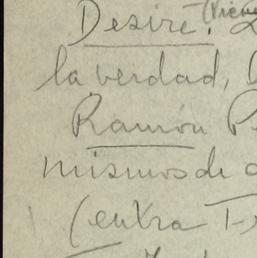 Desiré. (Viene
la verdad,
Ramón
mismos de
(entra